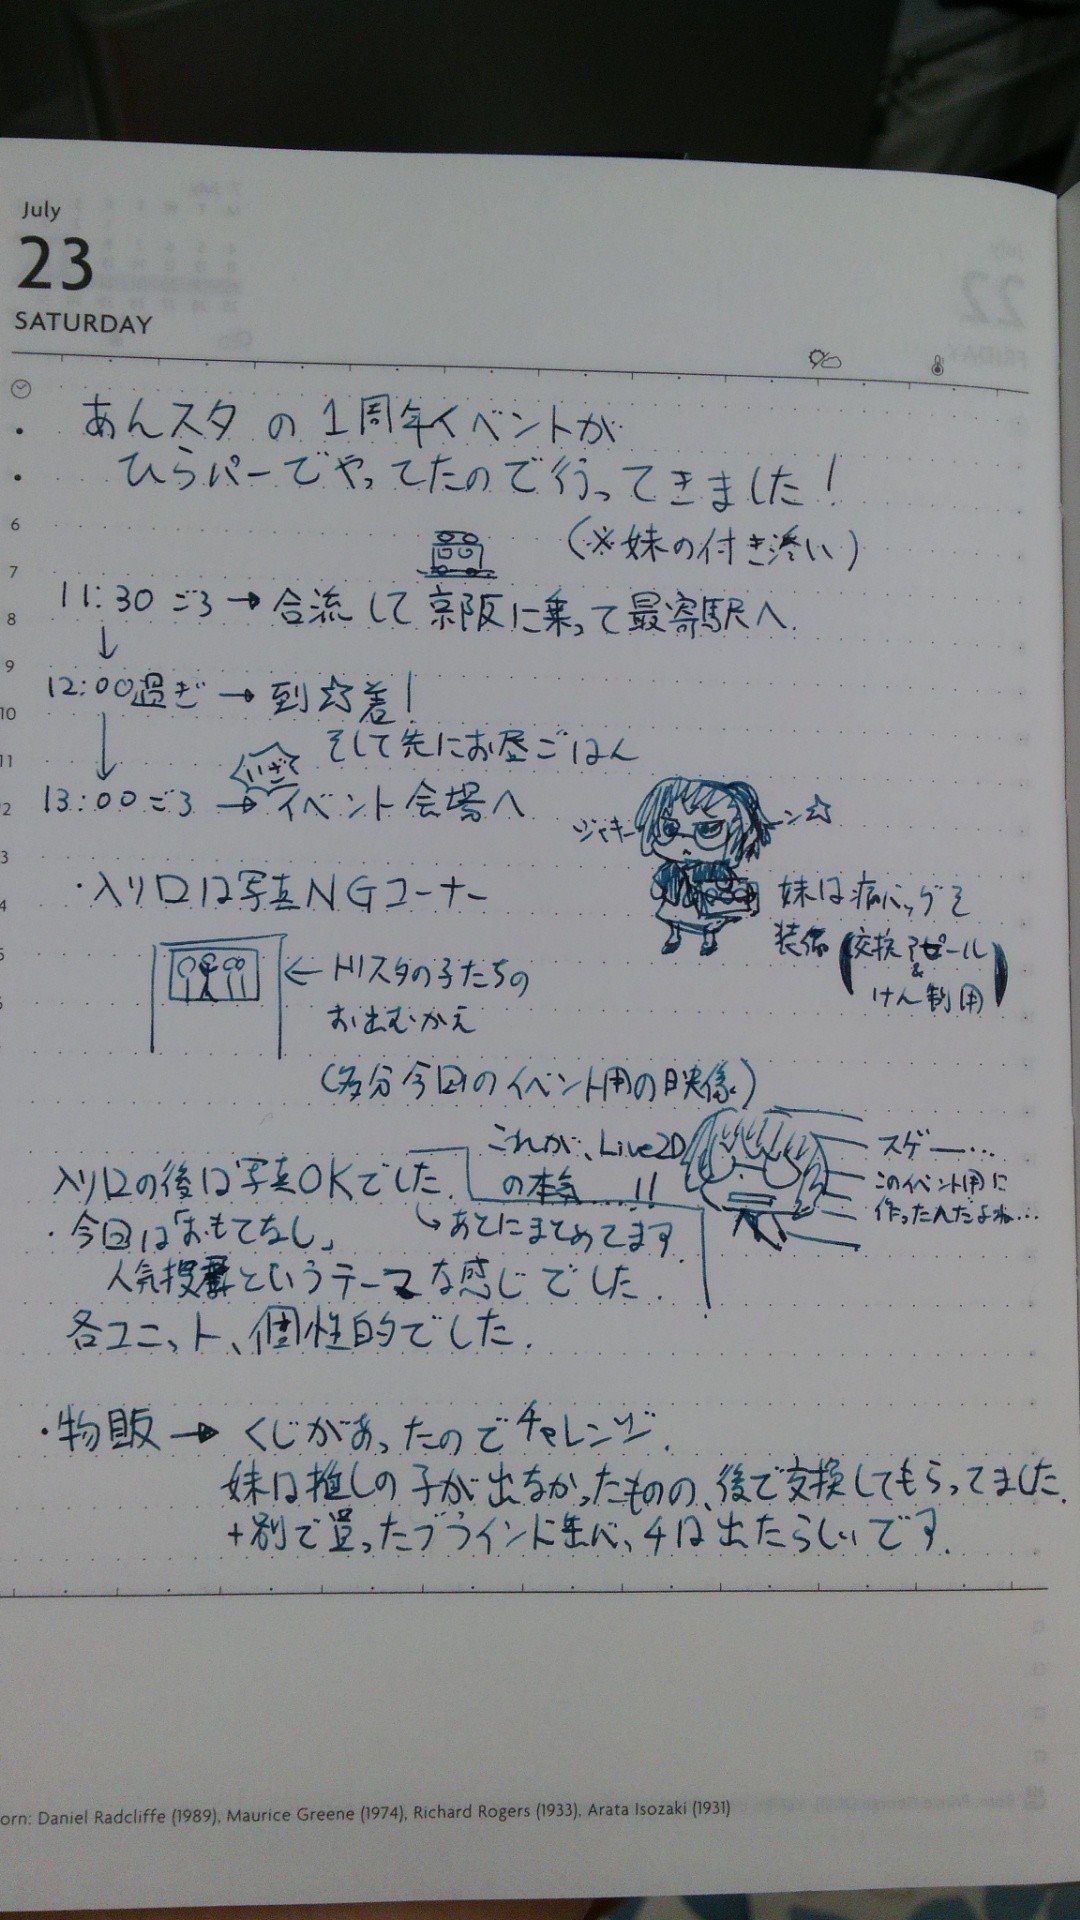 July
23
SATURDAY
あんスタの1周年イベントが
ひらパーでやってたので行ってきました!
(※妹の付き添い)
6
7
8
9
10
11
2
3
4
5
11:30ごろ→合流して京阪に乗って最寄駅へ.
↓
12:00過ぎ→到☆着!
↓
そして先にお昼ごはん
いざ
13:00ごろ→イベント会場へ
ジャキーン☆
・入り口は写真NGコーナー
妹は痛バッグを
装備(交換アピール
&
けん制用)
←トリスタの子たちの
お出むかえ
(多分今回のイベント用の映像)
これが、Live2D
の本気...!!
スゲー…
このイベント用に
作ったんだよね…
入り口の後は写真OKでした.
↳あとにまとめてます.
・今回は「おもてなし」
人気投票というテーマな感じでした.
各ユニット、個性的でした.
・物販→くじがあったのでチャレンジ.
妹は推しの子が出なかったものの、後で交換してもらってました.
+別で買ったブラインド缶バッチは出たらしいです.
orn: Daniel Radcliffe (1989), Maurice Greene (1974), Richard Rogers (1933), Arata Isozaki (1931)